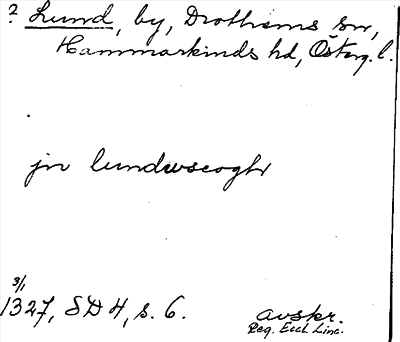 ? Lund, by, Drothems sn,
Hammarkinds hd, Österg. l.
jn lundwscoghr
3/1
1327, SDH, s. 6.
avskr.
Reg. Eccl. Linc.